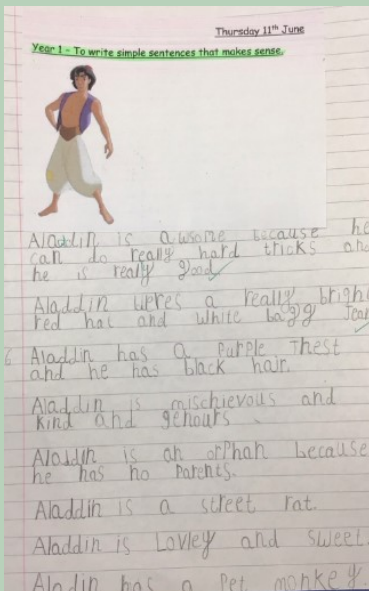 Thursday 11th June
Year 1 - To write simple sentences that makes sense.
Aladdin is awsome because he
can do really hard tricks and
he is really good
Aladdin weres a really brigh
red hat and white bagg Jean
6 Aladdin has a Purple Thest
and he has black hair.
Aladdin is mischievous and
kind and genours
Aladdin is an orphan because
he has no Parents.
Aladdin is a street rat.
Aladdin is Lovley and sweet.
Aladin has a Pet monkey.